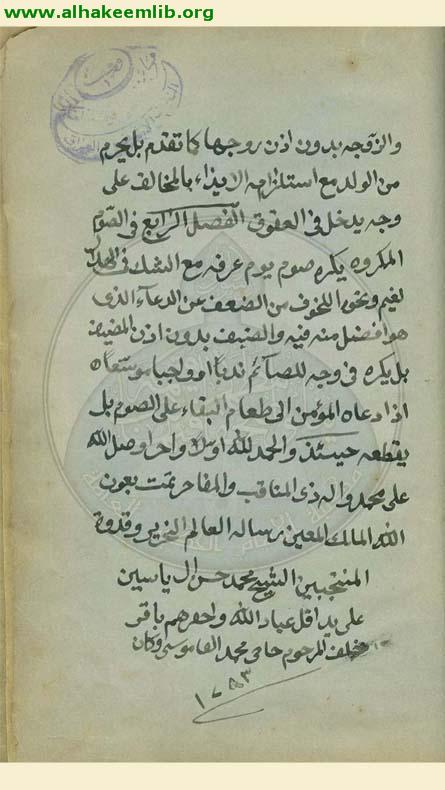 www.alhakeemlib.org
والزوجه بدون اذن زوجها كما تقدم بل يحرم
من الولد مع استلزامه الايذاء بالمخالفه على
وجه يدخل في العقوق الفصل الرابع في الصوم
المكروه يكره صوم يوم عرفه مع الشك في الهلال
لغيم ونحوه للخوف من الضعف عن الدعاء الذى
هو افضل منه فيه والضيف بدون اذن المضيف
بل يكره في وجه للصائم ندبا او واجبا موسعا
اذا دعاه المؤمن الى طعام البقاء على الصوم بل
يقطعه حينئذ والحمد لله اولا واخرا وصلى الله
على محمد واله ذى المناقب والمفاخر تمت بعون
الله المالك المعين رساله العالم النحرير وقدوة
المنتجبين الشيخ محمد حسن ال ياسين
على يد اقل عباد الله واحقرهم باقر
مخلف المرحوم حاجى محمد وكان